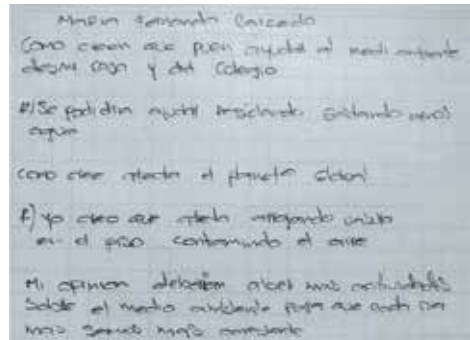 Maria Fernanda Caicedo
Como creen que puen ayudar al medi ambiente
desde casa y del Colegio
R/ Se podidin ayudar reciclando gastando menos
agua
como cree afecta el planeta
R) yo creo que afecta arrojando
en el piso contaminando el aire
Mi opinion deberian aicer mas actividades
sobre el medio ambiente para que cada
mas mas